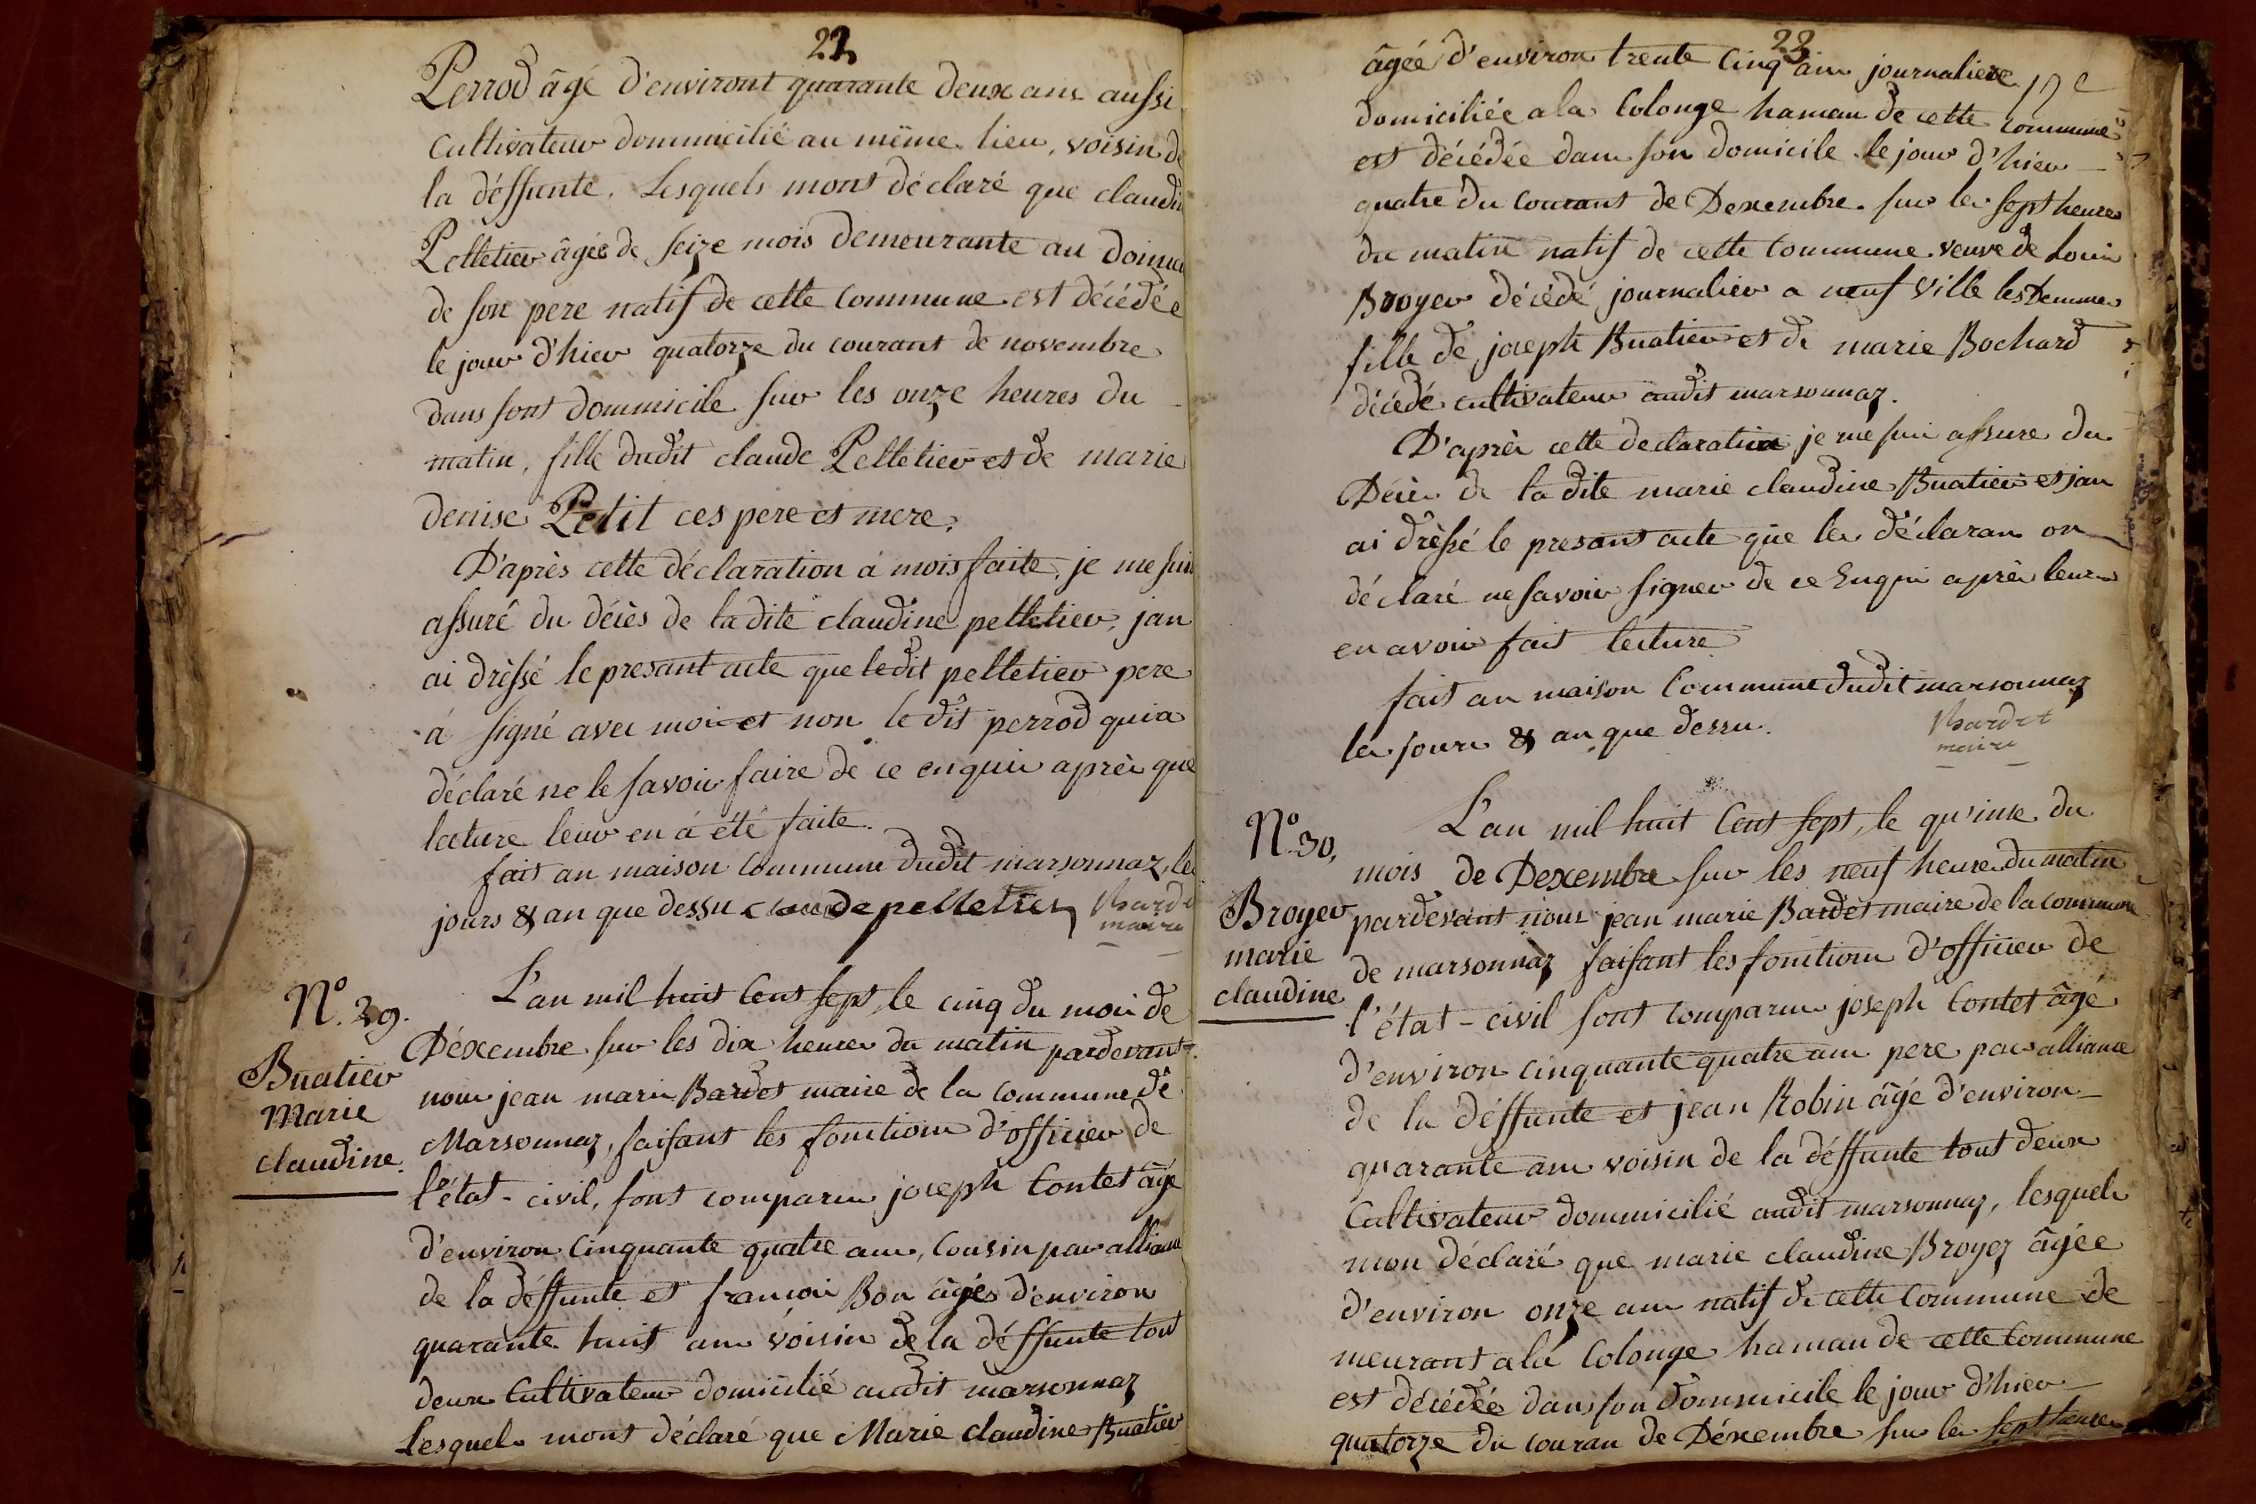 22
Perrod âgé d'environt quarante deux ans aussi
Cultivateur dommicilié au même lieu, voisin de
la déffunte. Lesquels mont déclaré que claudi
Pelletier âgée de seize mois demeurante au domici
de son pere natif de cette commune est décédée
le jour d'hier quatorze du courant de novembre
dans sont dommicile sur les onze heures du
matin, fille dudit claude Pelletier et de marie
denise Petit ces pere et mere.
D'après cette déclaration á mois faite, je me suis
assuré du décès de ladite claudine pelletier, jan
ai dréssé le presant acte que ledit pelletier pere
á signé avec moi et non le dit perrod qui a
déclaré ne le savoir faire de ce enquis après que
lecture leur en á été faite.
fait an maison commune dudit marsonnaz, les
jours & an que dessu claude pelletier Bardet
maire
N.° 29.
Buatier
Marie
claudine.
L'an mil huit Cent sept, le cinq du mois de
Déxembre sur les dix heures du matin pardevant
nous jean marie Bardet maire de la commune de
Marsonnaz, faisant les fonctions d'officier de
l'état-civil, sont comparus joseph Contet âgé
d'environ Cinquante quatre ans, Cousin par alliance
de la déffunte et francois Bon âgés d'environ
quarante huit ans voisin de la déffunte tout
deux Cultivateur domicilié audit marsonnaz
Lesquels mont déclaré que Marie claudine Buatier
23
âgée d'environ trente Cinq ans journaliere
domiciliée a la Colonge hameau de cette commune
est décédée dans son domicile le jour d'hier
quatre du courant de Dexembre. sur les sept heures
du matin natif de cette Commune veuve de Louis
Broyer décédé journalier a neuf Ville les Demmes
fille de joseph Buatier et de marie Bochard
décédé cultivateur audit marsonnaz.
D'après cette declaration je me suis assure du
Décès de la dite marie claudine Buatier et jan
ai dréssé le presant acte que les déclarans on
déclaré ne savoir signer de ce Enquis après leurs
en avoir fait lecture
fait an maison Commune dudit marsonnaz
les jours & an que dessu.
Bardet
maire
N.° 30,
Broyer
marie
claudine
L'an mil huit Cent sept, le qu'inse du
mois de Dexembre sur les neuf heures du matin
pardevant nous jean marie Bardet maire de la commune
de marsonnaz faisant les fonctions d'officier de
l'état-civil sont comparus joseph Contet âgé
d'environ cinquante quatre ans pere par alliance
de la déffunte et jean Robin âgé d'environ
quarante ans voisin de la déffunte tout deux
Cultivateur dommicilié audit marsonnaz, lesquels
mon déclaré que marie claudine Broyez âgée
d'environ onze ans natif de cette Commune de
meurant a la Colonge haman de cette Commune
est décédée dans son dommicile le jour d'hier
quatorze du couran de Déxembre sur les sept heures